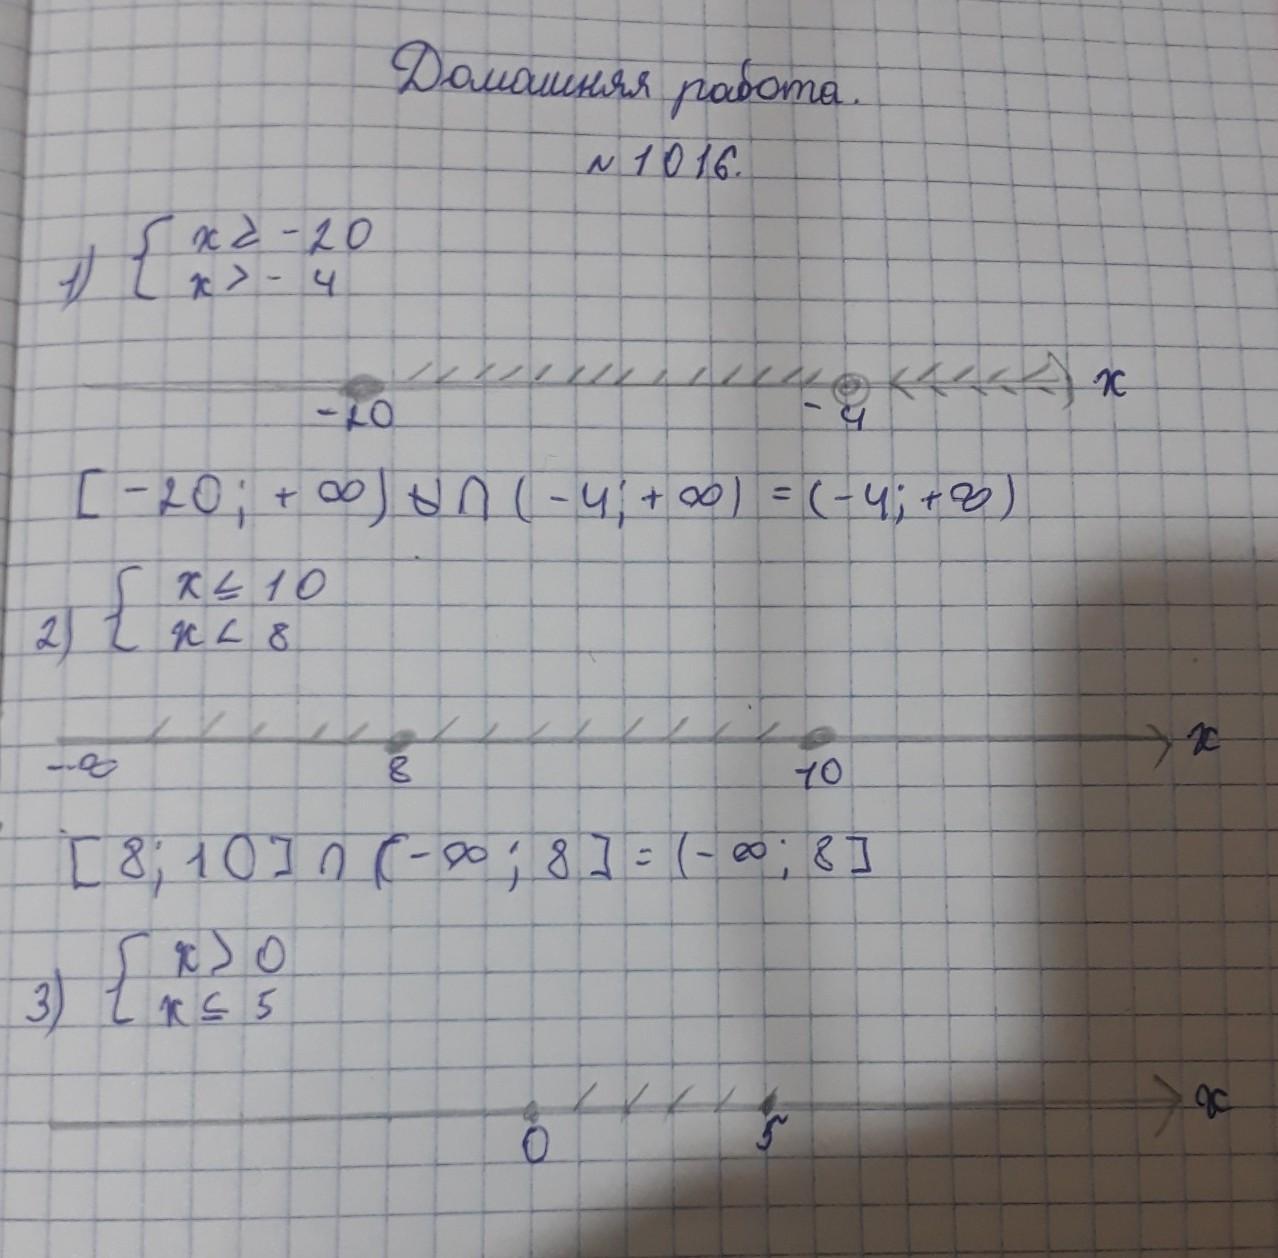 Домашняя работа.
№ 1016.
1) { x ≥ -20
x > -4
-20 -4 x
[-20; +∞) ∩ (-4; +∞) = (-4; +∞)
2) { x ≤ 10
x < 8
-∞ 8 10 x
[8; 10] ∩ (-∞; 8] = (-∞; 8]
3) { x > 0
x ≤ 5
0 5 x